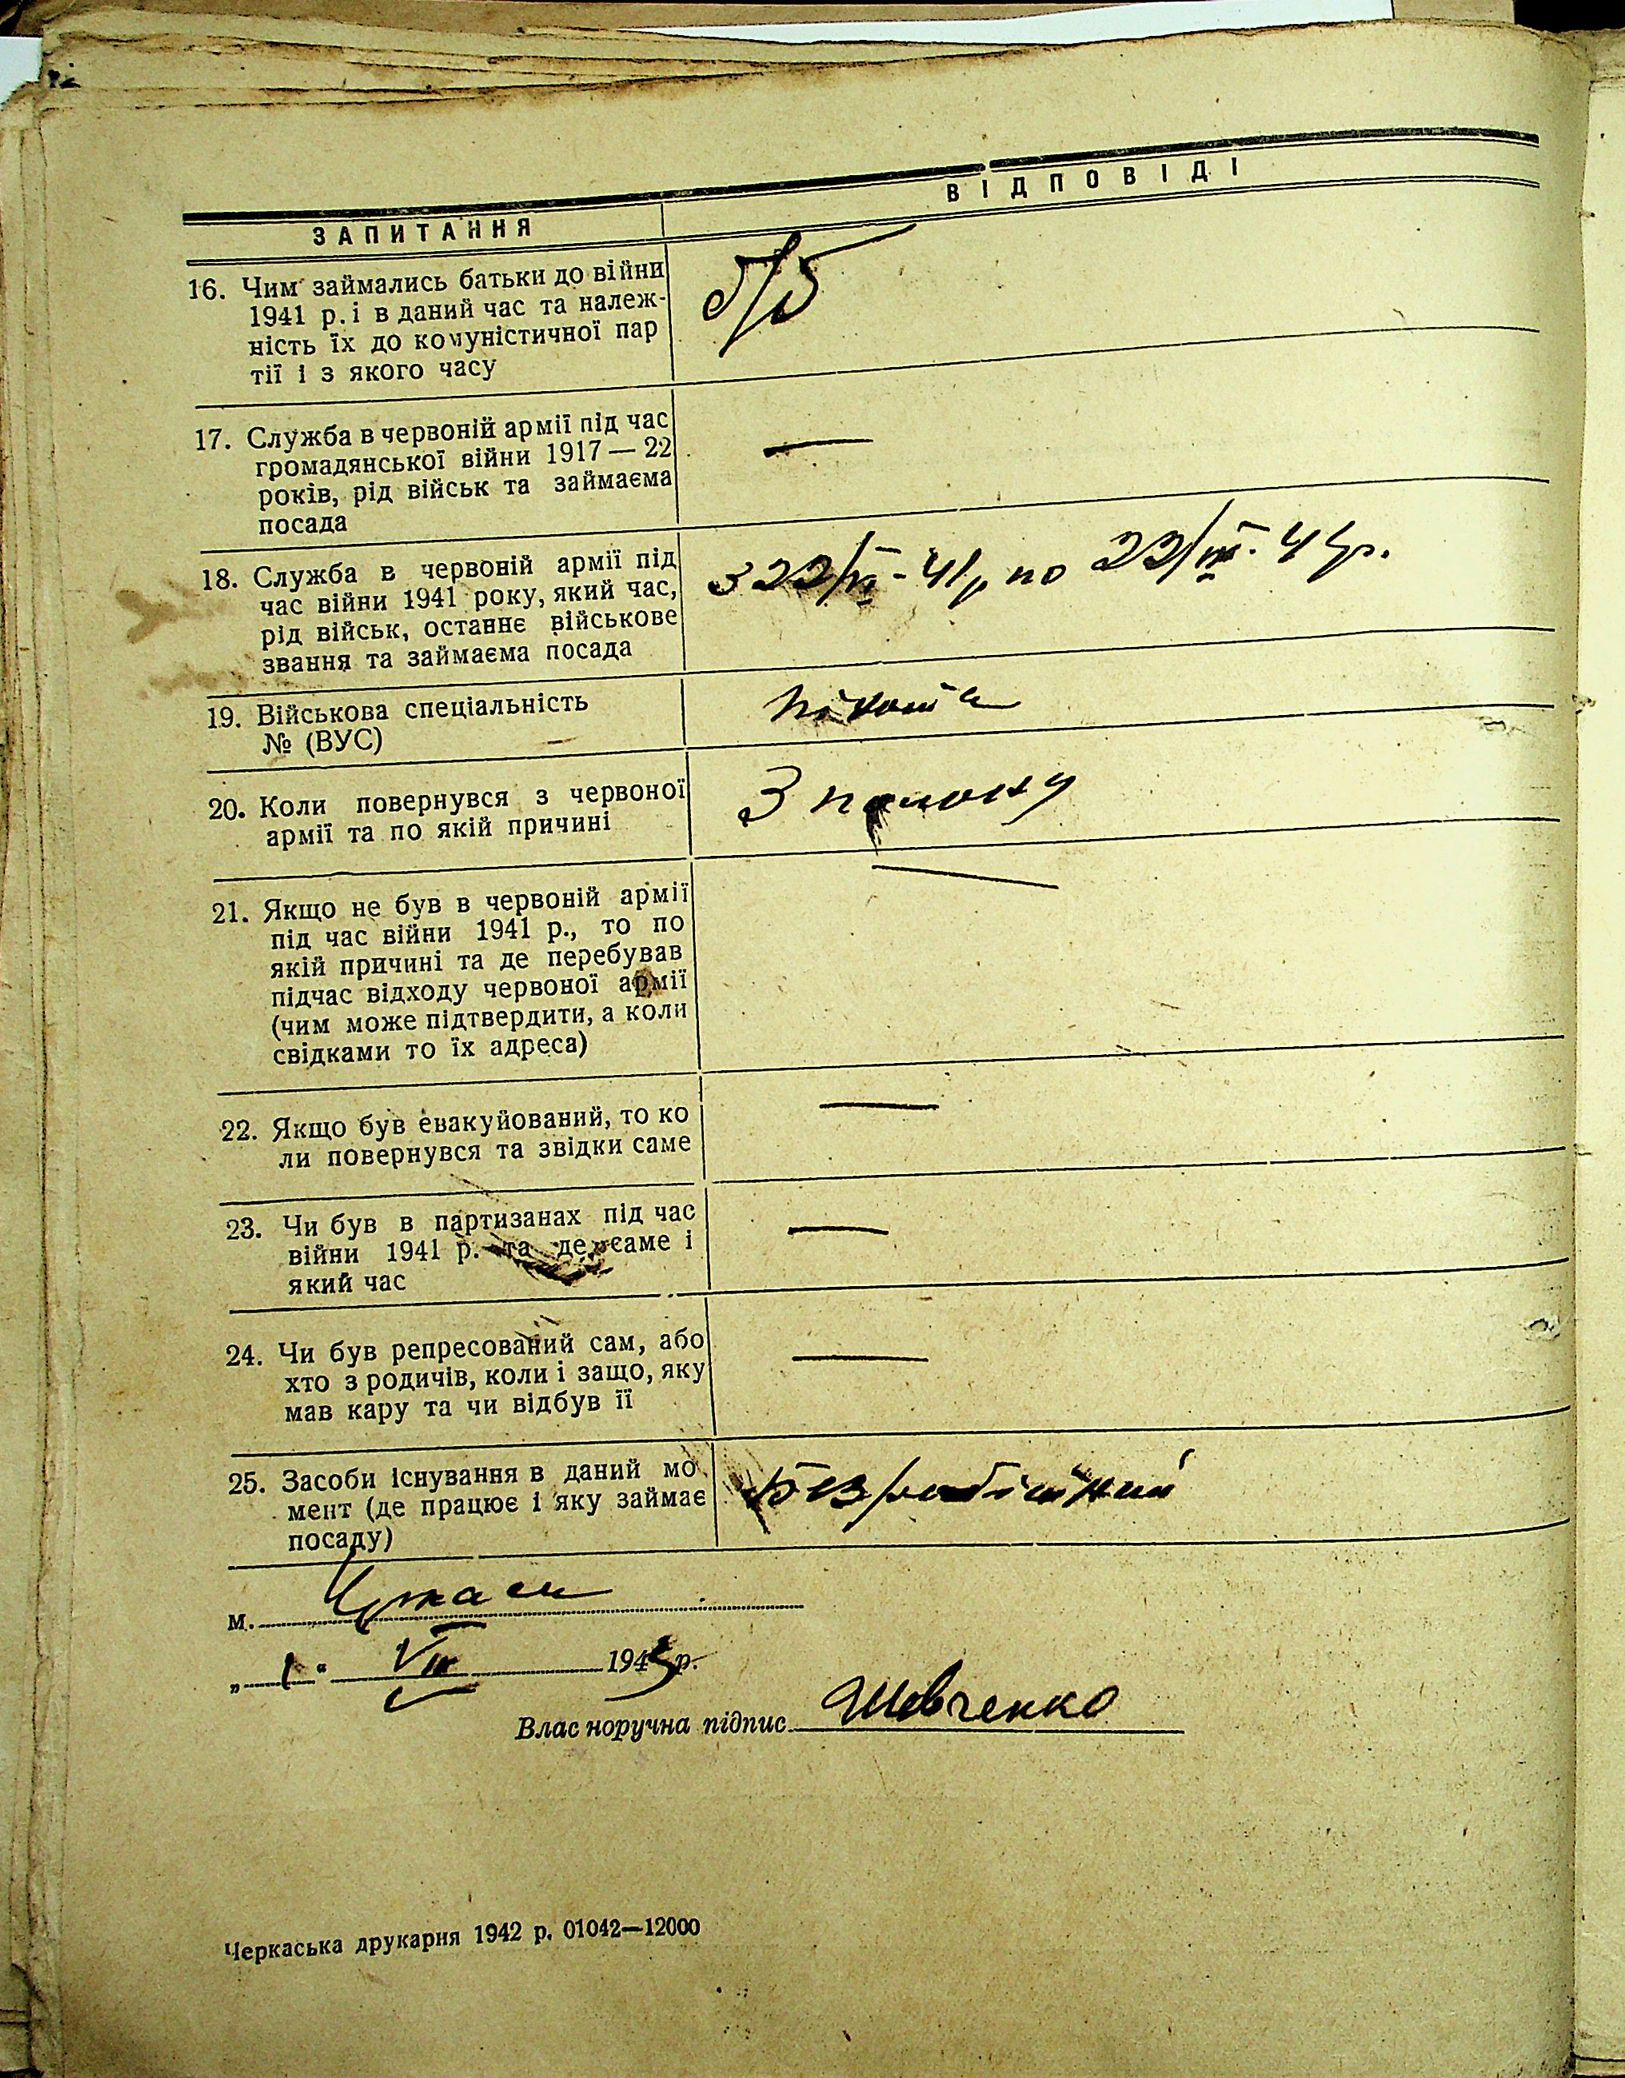 ЗАПИТАННЯ
ВІДПОВІДІ
16. Чим займались батьки до війни
1941 р. і в даний час та належ-
ність їх до комуністичної пар
тії і з якого часу
б/б
17. Служба в червоній армії під час
громадянської війни 1917 — 22
років, рід військ та займаєма
посада
—
18. Служба в червоній армії під
час війни 1941 року, який час,
рід військ, останнє військове
звання та займаєма посада
З 22/VI - 41р по 22/VIII - 41р.
19. Військова спеціальність
№ (ВУС)
піхота
20. Коли повернувся з червоної
армії та по якій причині
З полону
21. Якщо не був в червоній армії
під час війни 1941 р., то по
якій причині та де перебував
підчас відходу червоної армії
(чим може підтвердити, а коли
свідками то їх адреса)
—
22. Якщо був евакуйований, то ко
ли повернувся та звідки саме
—
23. Чи був в партизанах під час
війни 1941 р. та де саме і
який час
—
24. Чи був репресований сам, або
хто з родичів, коли і защо, яку
мав кару та чи відбув її
—
25. Засоби існування в даний мо
мент (де працює і яку займає
посаду)
Безробітний
м. Черкаси
„ 1 “ VIII 1943 р.
Влас норучна підпис Шевченко
Черкаська друкарня 1942 р. 01042—12000